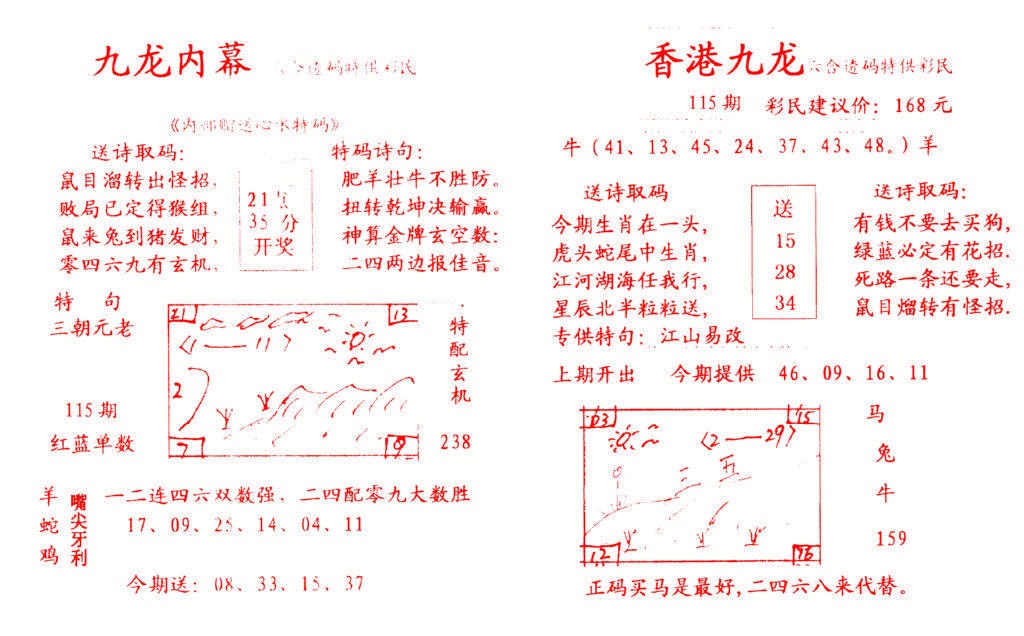 九龙内幕
六合造码特供彩民
《内部赠送心水特码》
送诗取码:
鼠目溜转出怪招,
败局已定得猴组,
鼠来兔到猪发财,
零四六九有玄机,
21
35 分
开奖
特码诗句:
肥羊壮牛不胜防。
扭转乾坤决输赢。
神算金牌玄空数:
二四两边报佳音。
特 句
三朝元老
115 期
红蓝单数
21
13
《1—11》
2
7
9
特配玄机
238
羊
蛇
鸡
嘴尖牙利
一二连四六双数强, 二四配零九大数胜
17、09、25、14、04、11
今期送: 08、33、15、37
香港九龙
六合造码特供彩民
115 期 彩民建议价: 168 元
牛 ( 41、13、45、24、37、43、48。) 羊
送诗取码
今期生肖在一头,
虎头蛇尾中生肖,
江河湖海任我行,
星辰北半粒粒送,
专供特句: 江山易改
送
15
28
34
送诗取码:
有钱不要去买狗,
绿蓝必定有花招.
死路一条还要走,
鼠目熘转有怪招.
上期开出 今期提供 46、09、16、11
03
15
《2—29》
三 五
12
马
兔
牛
159
正码买马是最好,二四六八来代替。